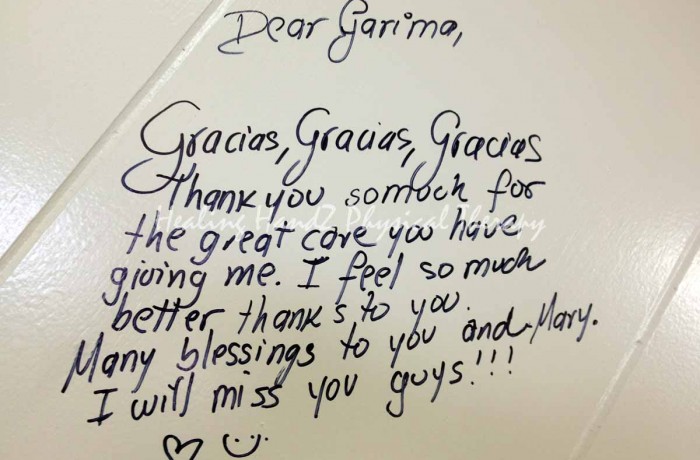 Dear Garima,
Gracias, Gracias, Gracias
Thank you somuch for
Healing HandZ Physical Therapy
the great care you have
giving me. I feel so much
better thank s to you.
Many blessings to you and Mary.
I will miss you guys!!!